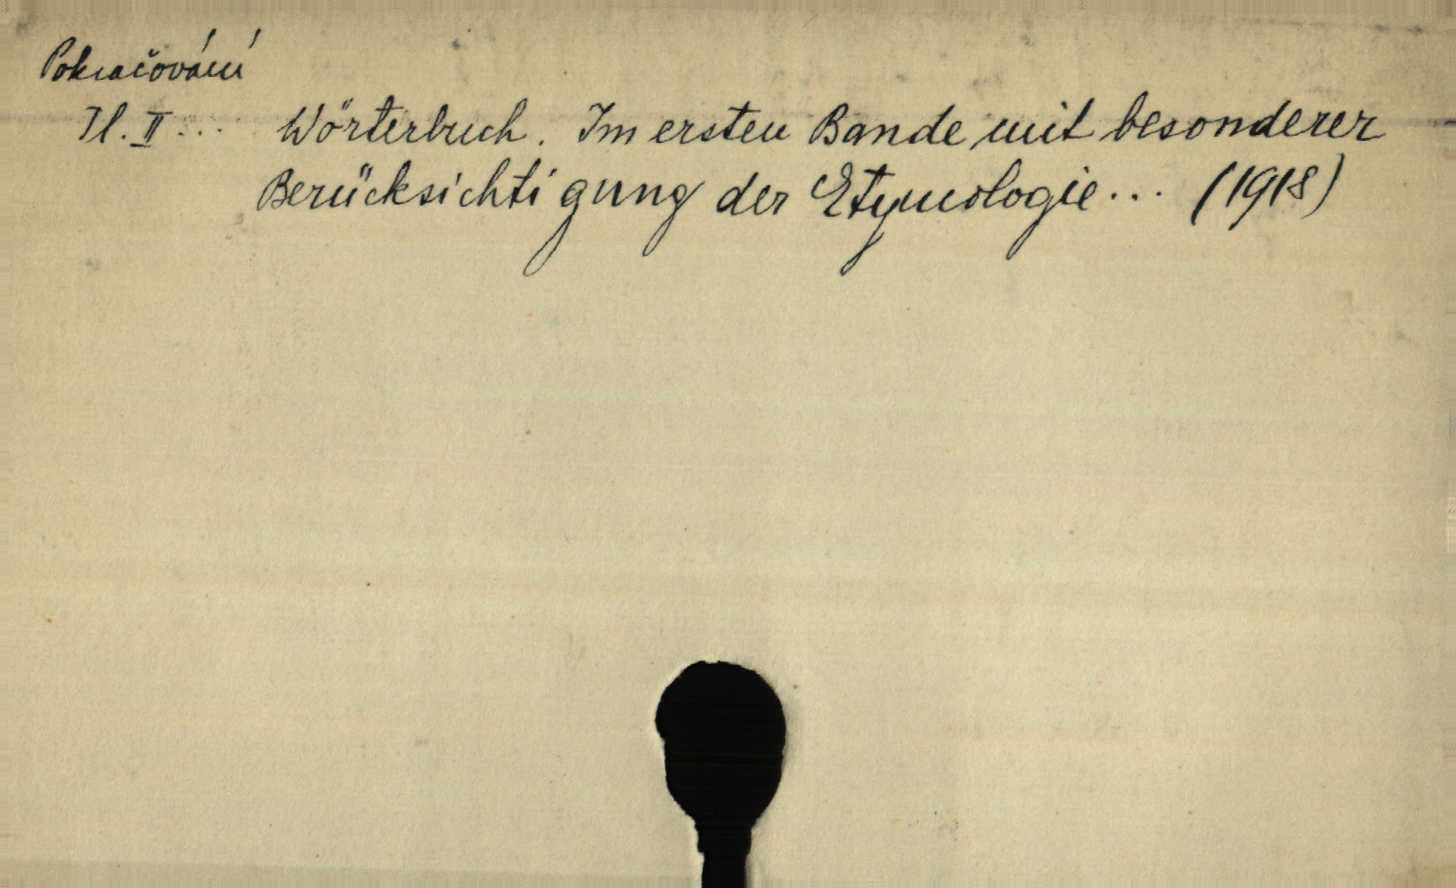 Pokračování
Tl. II... Wörterbuch. Im ersten Bande mit besonderer
Berücksichtigung der Etymologie... (1918)